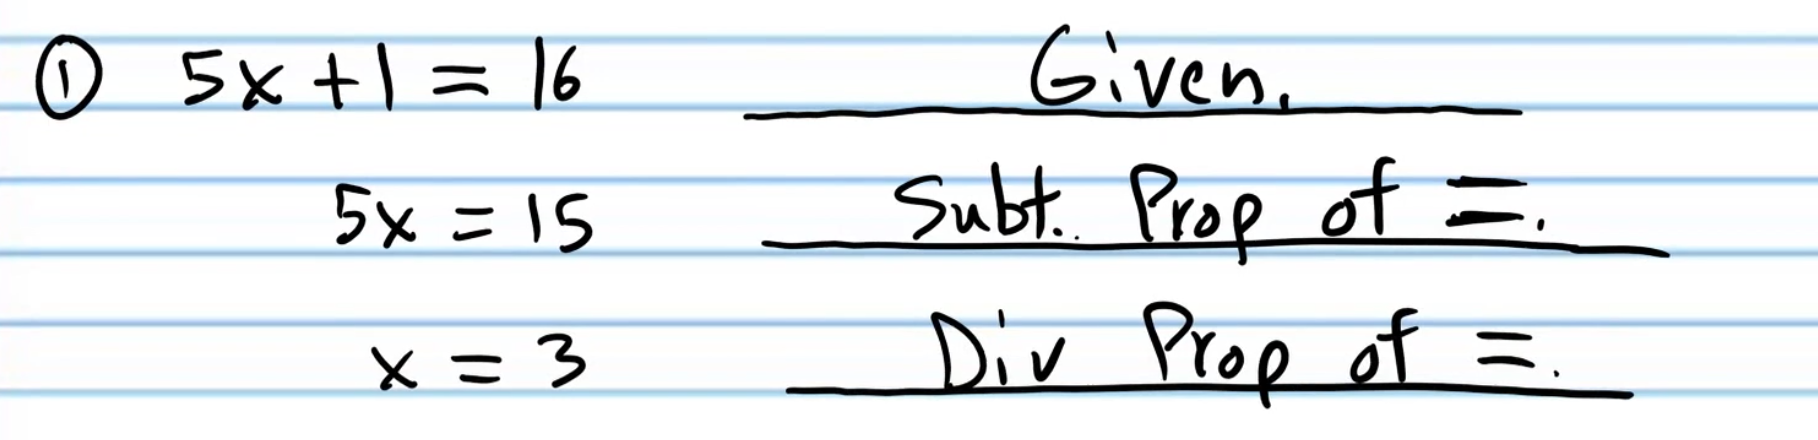 ① 5x + 1 = 16 Given.
5x = 15 Subt. Prop of =.
x = 3 Div Prop of =.